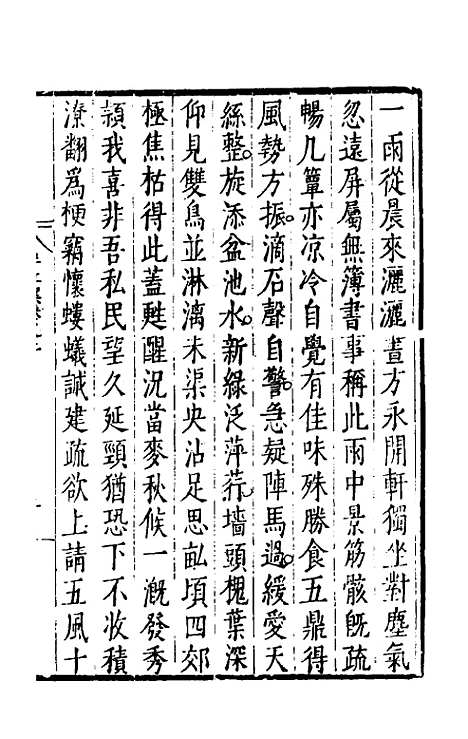 一雨從晨來灑灑晝方永開軒獨坐對塵氣
忽遠屏屬無簿書事稱此雨中景筋骸旣疏
暢几簟亦凉冷自覺有佳味殊勝食五鼎得
風勢方振滴石聲自警急疑陣馬過緩愛天
絲整旋添盆池水新綠泛萍荇墻頭槐葉深
仰見雙鳥並淋漓未渠央沾足思畝頃四郊
極焦枯得此蓋甦醒况當麥秋候一溉發秀
頴我喜非吾私民望久延頸猶恐下不收積
潦翻爲梗竊懷螻蟻誠建疏欲上請五風十